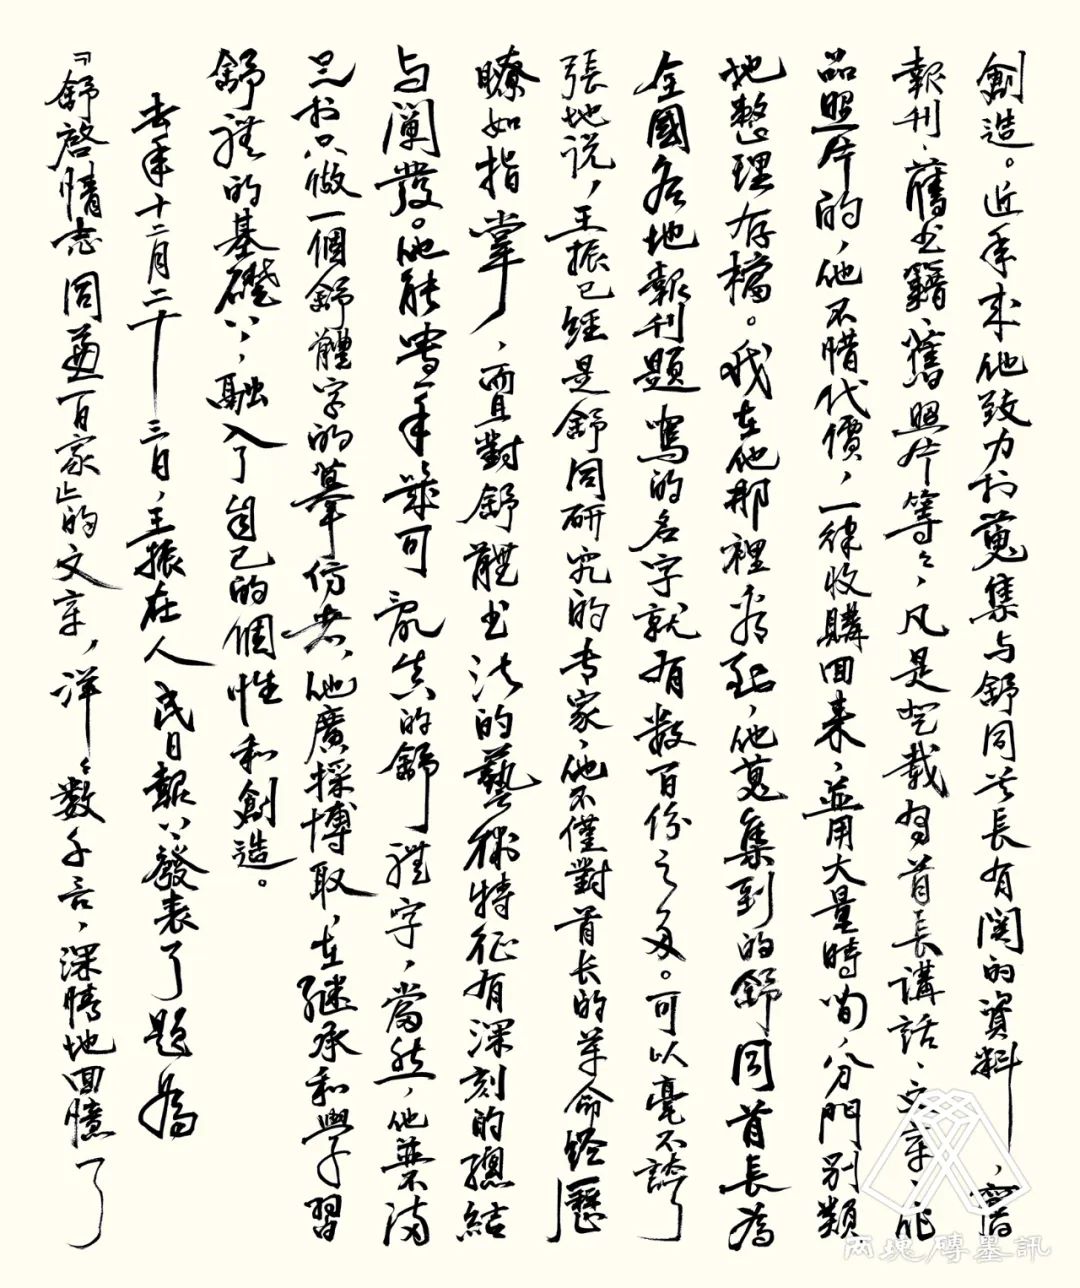 創造。近年来他致力於蒐集与舒同首長有関的資料，舊
報刊、舊书籍、舊照片等々，凡是登載有首長講話、文章、作
品照片的，他不惜代價，一律收購回来，並用大量時间，分門别類
地整理存檔。我在他那裡看到，他蒐集到的舒同首長為
全國各地報刊題寫的名字就有数百份之多。可以毫不誇
張地说，王振已經是舒同研究的专家，他不僅對首长的革命经歷
瞭如指掌，而且對舒體书法的藝術特征有深刻的總結
与闡發。他能寫一手幾可亂真的舒體字，當然，他並不满
足於只做一個舒體字的摹仿者，他廣採博取，在继承和學習
舒體的基礎上，融入了自己的個性和創造。
去年十二月二十三日，王振在人民日報上發表了題為
『舒啓情志 同道百家』的文章，洋洋数千言，深情地回憶了
两塊磚墨訊